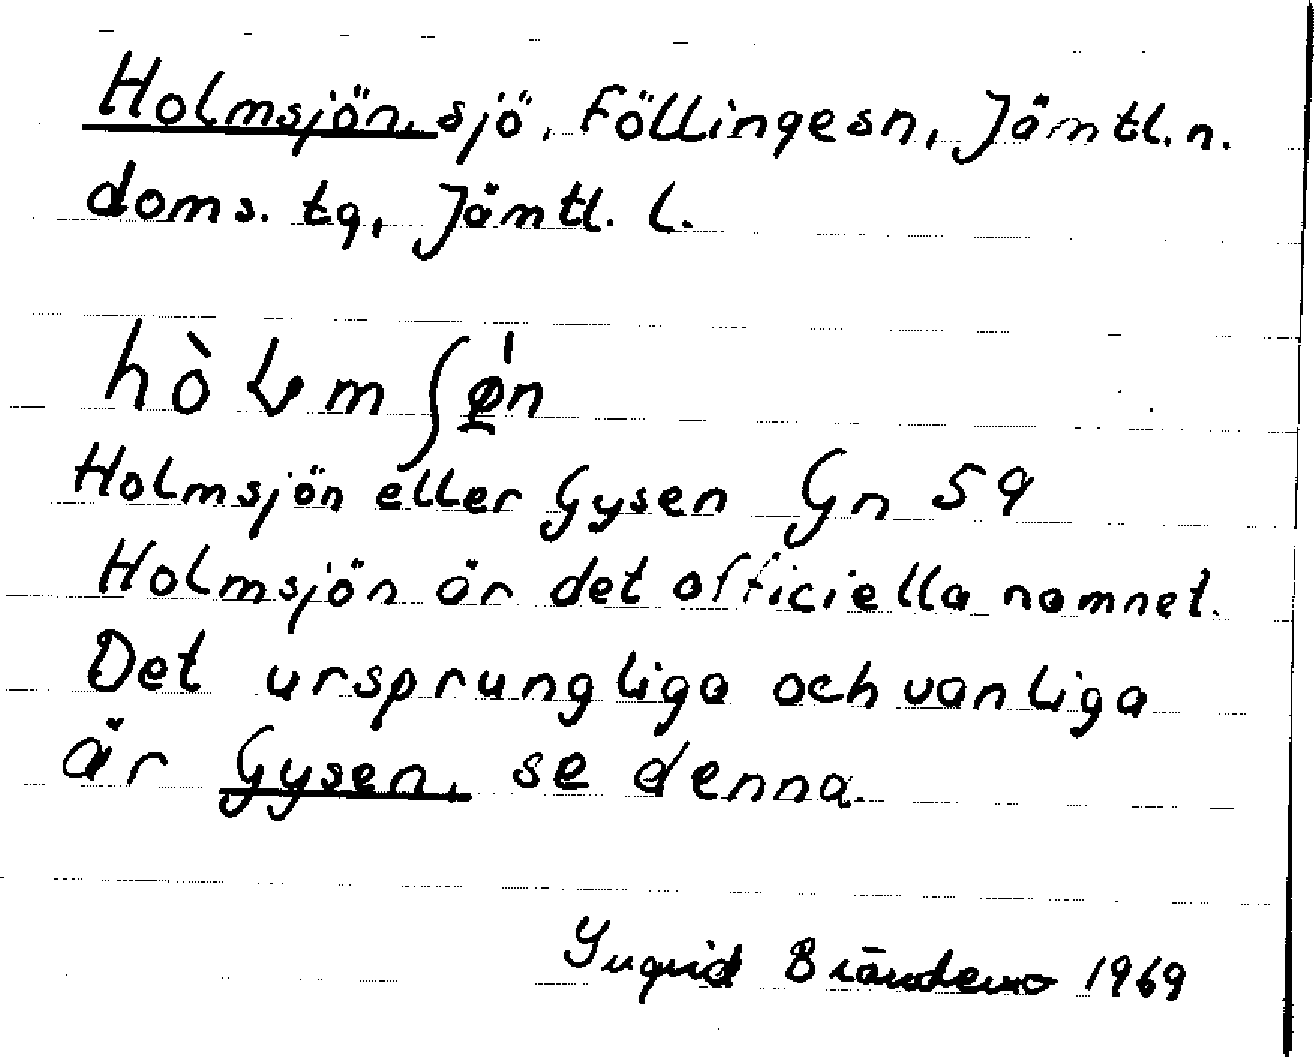 Holmsjön, sjö, Föllingesn, Jämtl. n.
doms. tg, Jämtl. l.
Holmsjön eller Gysen Gn 59
Holmsjön är det officiella namnet.
Det ursprungliga och vanliga
är Gysen, se denna.
Ingrid Brändemo 1969